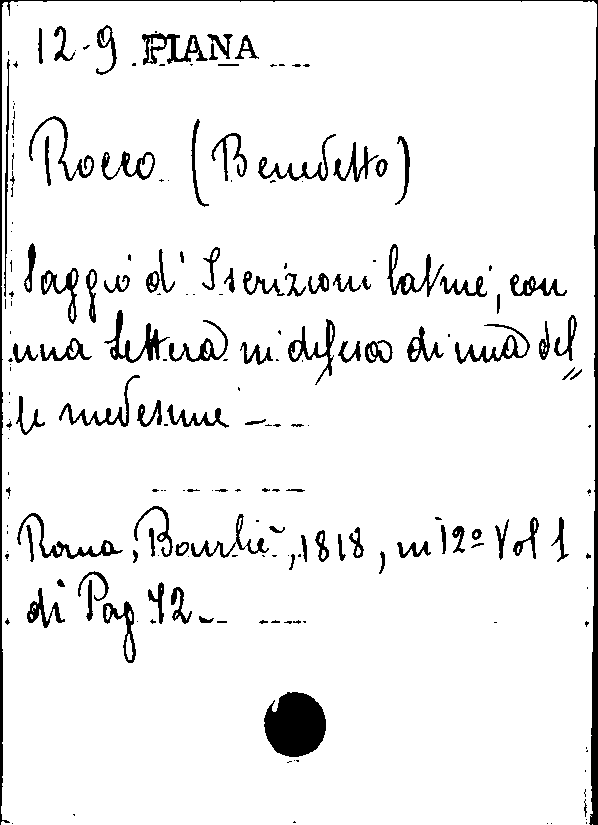 12-9 PIANA
Rocco (Benedetto)
Saggio d' Iscrizioni latine, con
una Lettera in difesa di una del„
le medesime –
Roma, Bourlié, 1818, in 12º Vol 1
di Pag 72.